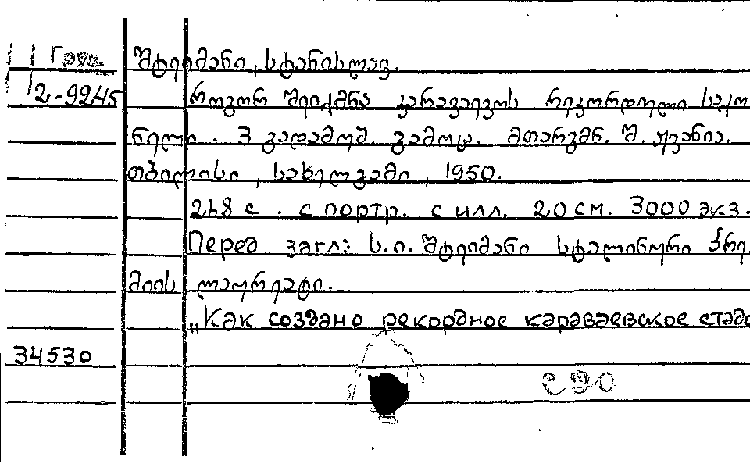 Груз. შტეიმანი, სტანისლავ.
2-9245 როგორ შეიქმნა კარავაევოს რეკორდული საქო
ნელი. 3 გადამუშ. გამოც. თარგმნ. შ. ჟვანია.
თბილისი, სახელგამი, 1950.
248 с. с портр. с илл. 20 см. 3000 экз.
Перед загл: ს.ი. შტეიმანი სტალინური პრე
მიის ლაურეატი.
„Как создано рекордное караваевское стадо
34530